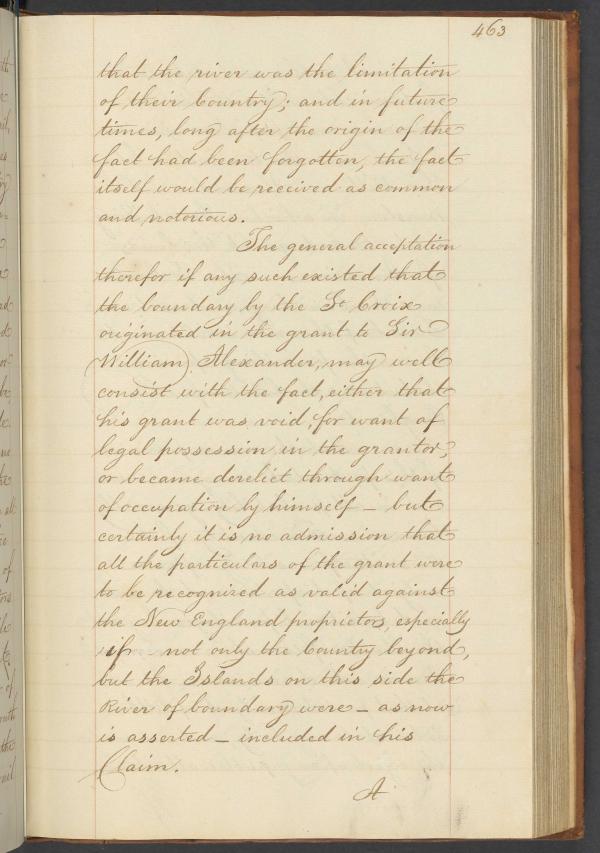 463
that the river was the limitation
of their Country; and in future
times, long after the origin of the
fact had been forgotten, the fact
itself would be received as common
and notorious.
The general acceptation
therefor if any such existed that
the boundary by the St Croix
originated in the grant to Sir
William Alexander, may well
consist with the fact, either that
his grant was void, for want of
legal possession in the grantor,
or became derelict through want
of occupation by himself – but
certainly it is no admission that
all the particulars of the grant were
to be recognized as valid against
the New England proprietors, especially
if not only the Country beyond,
but the Islands on this side the
River of boundary were – as now
is asserted – included in his
Claim.
A